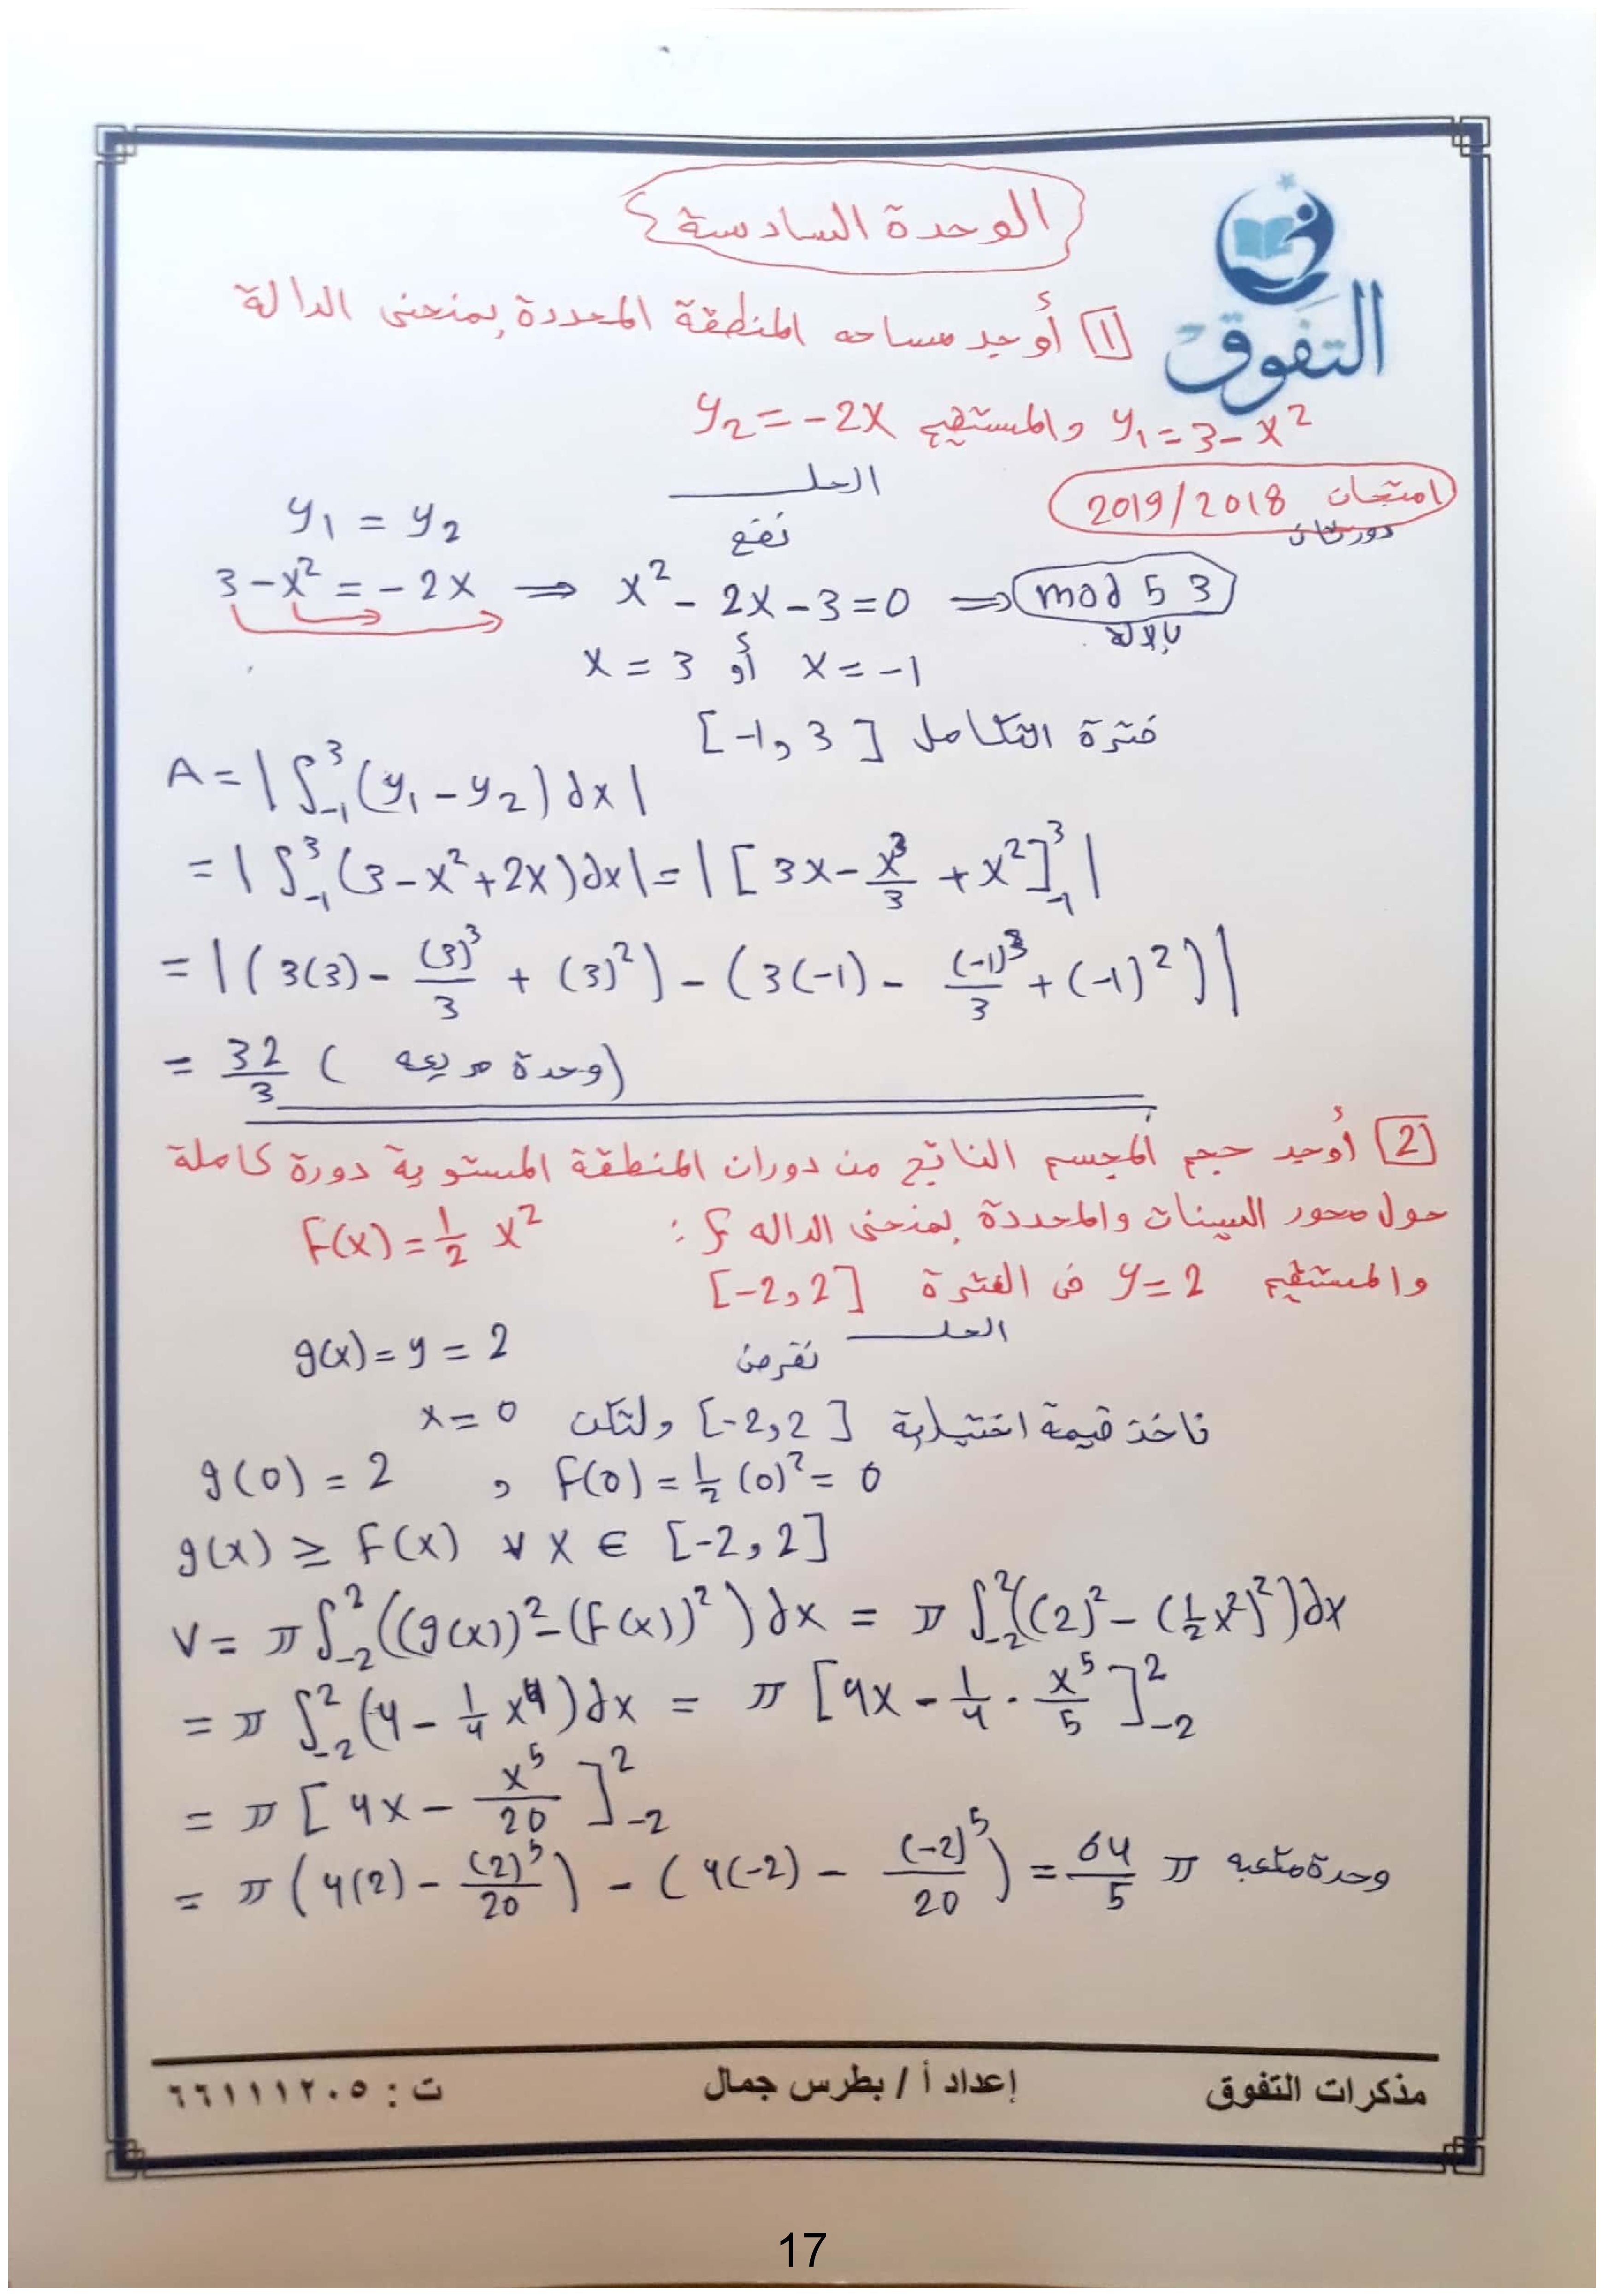 الوحدة السادسة
التفوق
1 أوجد مساحه المنطقة المحددة بمنحنى الدالة
y₁ = 3 - x² والمستقيم y₂ = -2x
امتحان 2019/2018
دور ثان
الحل
نضع y₁ = y₂
3 - x² = -2x ⇒ x² - 2x - 3 = 0 ⇒ mod 5 3
بالآلة
x = 3 أو x = -1
فترة التكامل [-1, 3]
A = |∫₋₁³ (y₁ - y₂) dx|
= |∫₋₁³ (3 - x² + 2x) dx| = |[3x - x³/3 + x²]₋₁³|
= |(3(3) - (3)³/3 + (3)²) - (3(-1) - (-1)³/3 + (-1)²)|
= 32/3 (وحدة مربعه)
2 أوجد حجم المجسم الناتج من دوران المنطقة المستوية دورة كاملة
حول محور السينات والمحددة بمنحنى الداله f : F(x) = 1/2 x²
والمستقيم y = 2 في الفترة [-2, 2]
الحل
نفرض g(x) = y = 2
ناخذ قيمة اختيارية [-2, 2] ولتكن x = 0
g(0) = 2 , F(0) = 1/2 (0)² = 0
g(x) ≥ F(x) ∀ x ∈ [-2, 2]
V = π ∫₋₂² ((g(x))² - (F(x))²) dx = π ∫₋₂² ((2)² - (1/2 x²)²) dx
= π ∫₋₂² (4 - 1/4 x⁴) dx = π [4x - 1/4 · x⁵/5]₋₂²
= π [4x - x⁵/20]₋₂²
= π (4(2) - (2)⁵/20) - (4(-2) - (-2)⁵/20) = 64/5 π وحدة مكعبه
مذكرات التفوق إعداد أ / بطرس جمال ت : ٦٦١١١٢٠٥
17